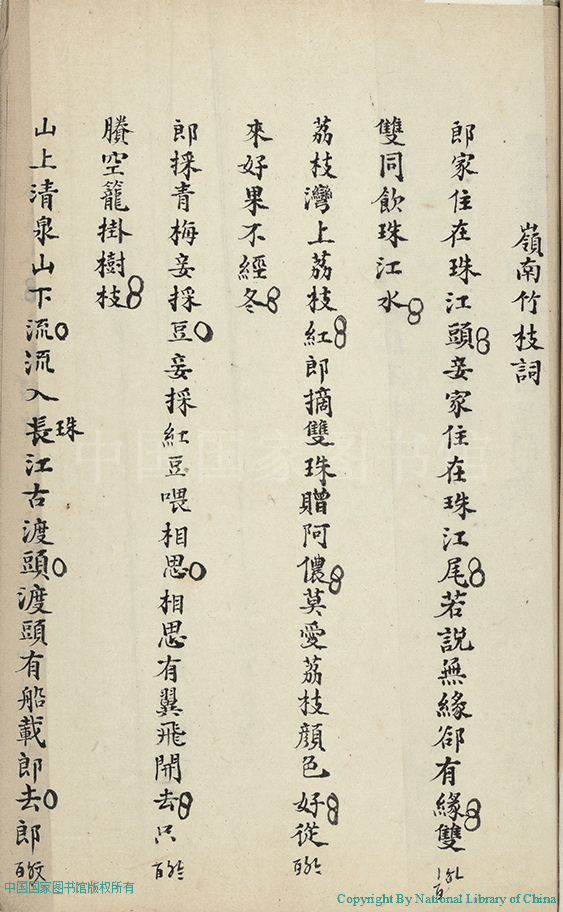 嶺南竹枝詞
郎家住在珠江頭妾家住在珠江尾若説無緣郤有緣雙
雙同飲珠江水
荔枝灣上荔枝紅郎摘雙珠贈阿儂莫愛荔枝顏色好從
來好果不經冬
郎採青梅妾採豆妾採紅豆喂相思相思有翼飛開去只
賸空籠掛樹枝
山上清泉山下流流入長江古渡頭渡頭有船載郎去郎
珠
中国国家图书馆
中国国家图书馆版权所有
Copyright By National Library of China